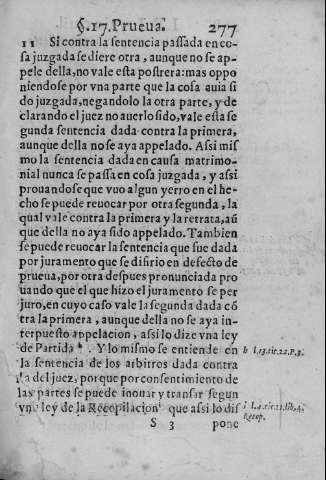 §.17. Prueua. 277
11 Si contra la sentencia passada en co-
sa juzgada se diere otra, aunque no se ap-
pele della, no vale esta postrera: mas oppo
niendose por vna parte que la cosa auia si
do juzgada, negandolo la otra parte, y de
clarando el juez no auerlo sido, vale esta se
gunda sentencia dada contra la primera,
aunque della no se aya appelado. Assi mis
mo la sentencia dada en causa matrimo-
nial nunca se passa en cosa juzgada, y assi
prouandose que vuo algun yerro en el he-
cho se puede reuocar por otra segunda, la
qual vale contra la primera y la retrata, aũ
que della no aya sido appelado. Tambien
se puede reuocar la sentencia que fue dada
por juramento que se difirio en defecto de
prueua, por otra despues pronunciada pro
uando que el que hizo el juramento se per
juro, en cuyo caso vale la segunda dada cõ
tra la primera, aunque della no se aya in-
terpuesto appelacion, assi lo dize vna ley
de Partida h. Y lo mismo se entiende en
h l.13.tit.22.p.3.
la sentencia de los arbitros dada contra
la del juez, porque por consentimiento de
las partes se puede inouar y transar segun
vna ley de la Recopilacion i que assi lo dis
i l.4.tit.21.lib.4.
Recop.
S 3 pone